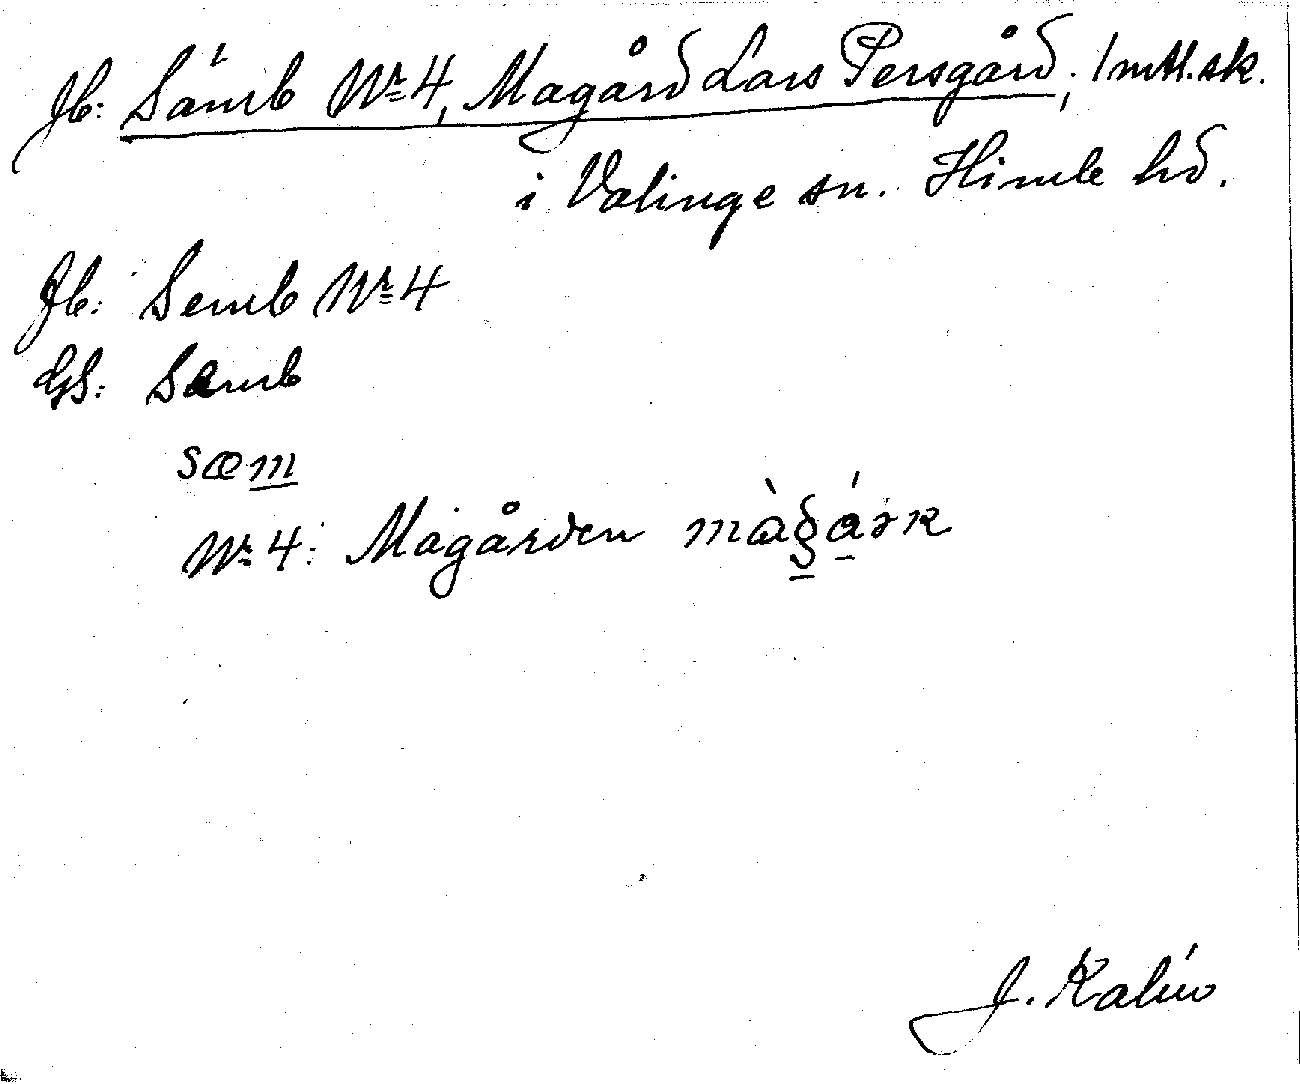 Jb: Sämb Nr 4, Magård Lars Persgård; 1 mtl. sk.
i Valinge sn. Himle hd.
Jb: Semb Nr 4
GS: Sæmb
sæm
Nr 4: Magården
J. Kalén